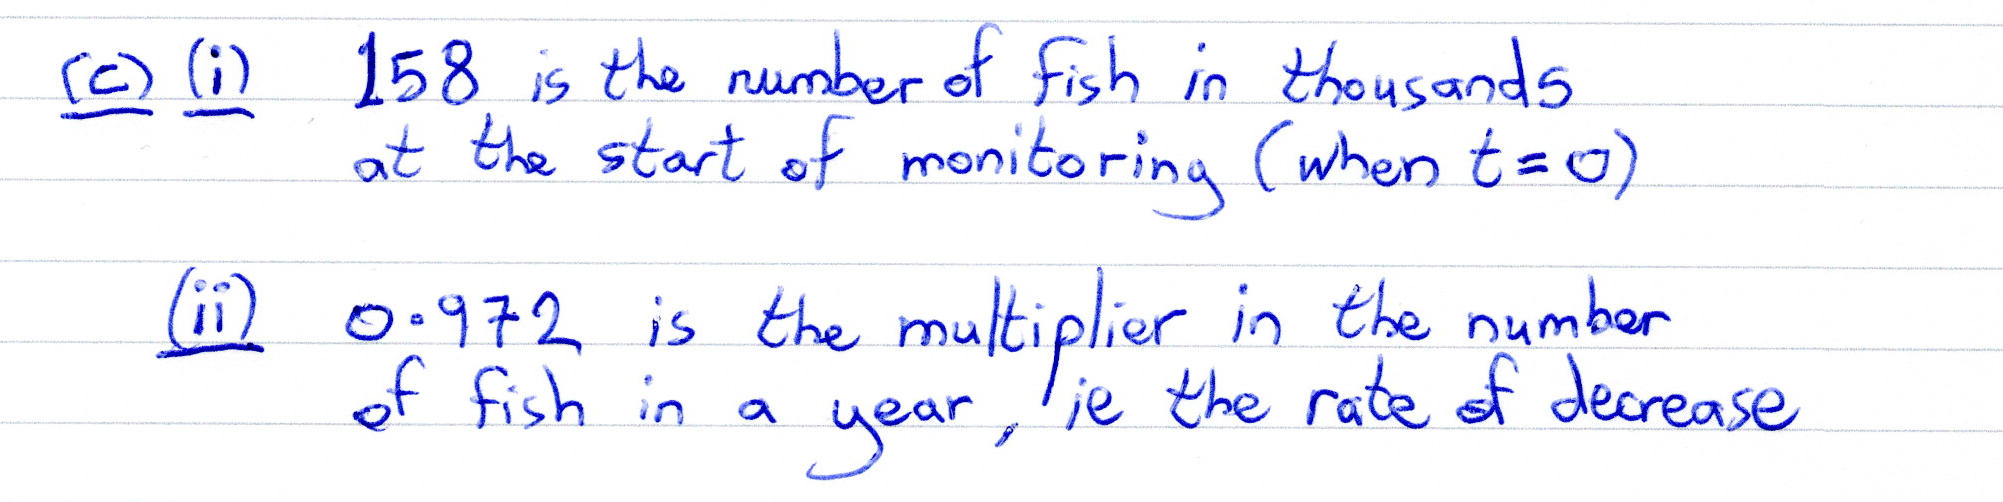 (c) (i) 158 is the number of fish in thousands
at the start of monitoring (when t=0)
(ii) 0.972 is the multiplier in the number
of fish in a year, ie the rate of decrease